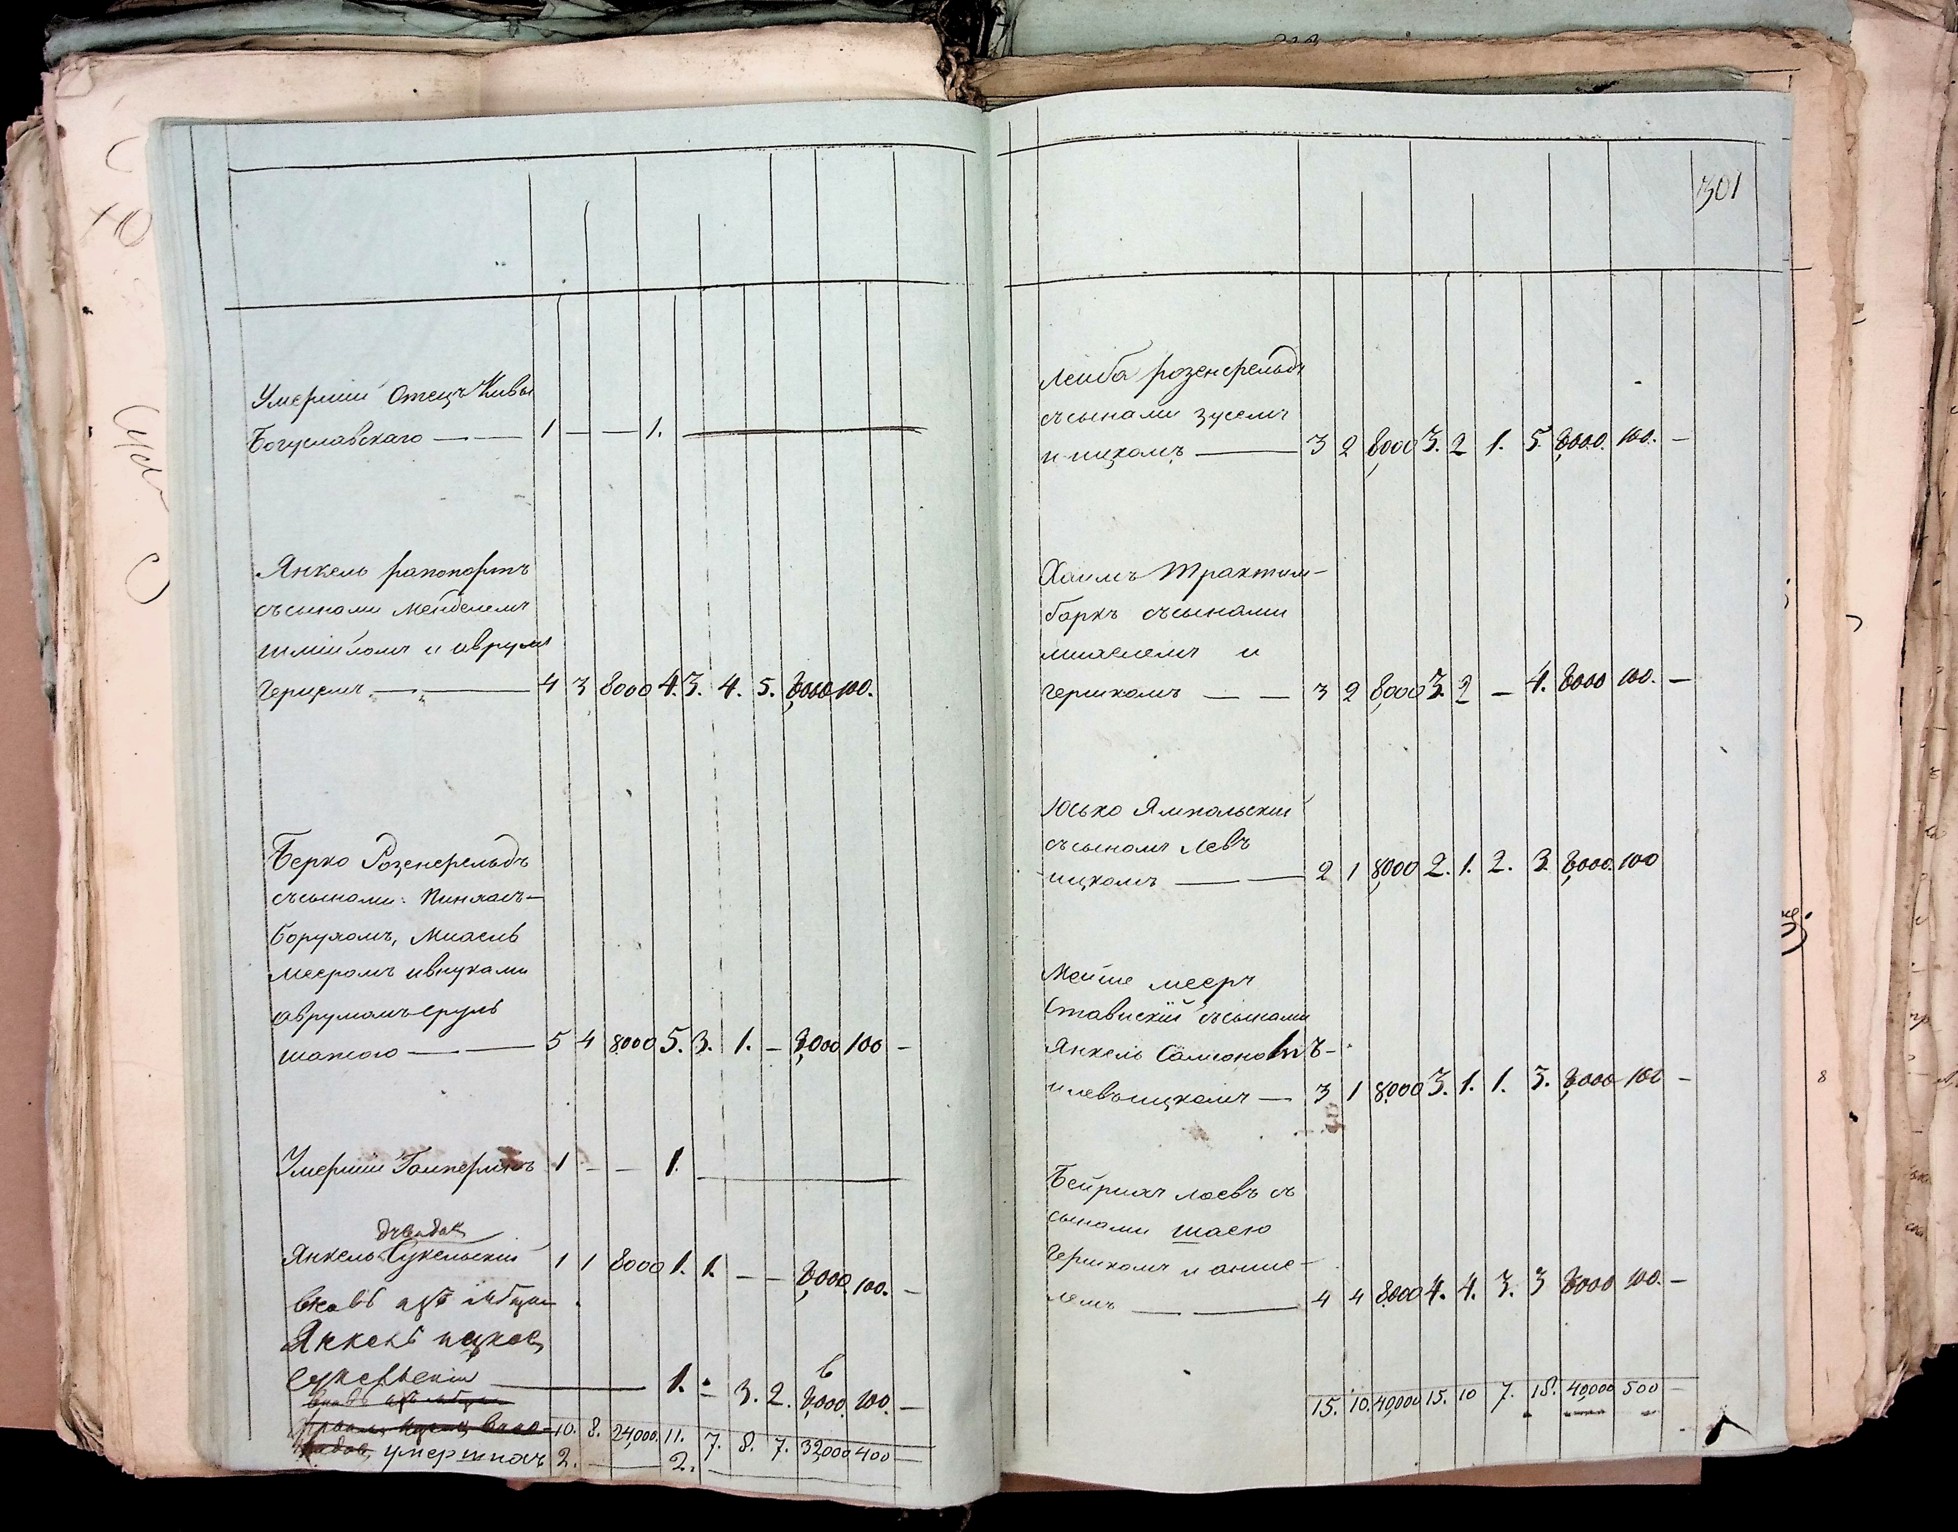 Умершiй Отецъ Кивы
Богуславскаго — — 1 — — 1.
Янкель рапопортъ
съсынами Менделемъ
шмiйломъ и аврумъ
герщемъ — — 4 3 8000 4. 3. 4. 5. 8,000 100.
Берко Розенфельдъ
съсынами: Пинхасъ-
борухомъ, Миасеѣ
мееромъ ивнуками
аврумомъ сруль
шатею — — 5 4 8000 5. 3. 1. — 8,000 100 —
Умершiй 1 — — 1.
Янкель Сукельскiй 1 1 8000 1. 1. — — 8,000. 100. —
Янкель
1. — 3. 2. 8,000. 100. —
10. 8. 24,000. 11. 7. 8. 7. 32,000 400 —
умершихъ 2. — 2.
301
Лейба розенфельдъ
съсынами зуселъ
и ицкомъ — 3 2 8,000 3. 2 1. 5. 8,000. 100. —
Хаимъ Трахтим-
баркъ съсынами
миаелемъ и
гершкомъ — — 3 2 8,000 3. 2 — 4. 8000 100. —
Юсько Ямпольскiй
съсыномъ Левъ
ицкомъ — — 2 1 8,000 2. 1. 2. 3. 8,000. 100
Мейше мееръ
Ставискiй съсынами
Янкель Самсономъ-
илевъицкомъ — 3 1 8,000 3. 1. 1. 3. 8,000 100 —
Бейришъ лаевъ съ
сынами шаею
Гершкомъ и анше-
лемъ — — 4 4 8,000 4. 4. 3. 3 8000 100. —
15. 10. 40,000 15. 10 7. 18. 40,000 500 —